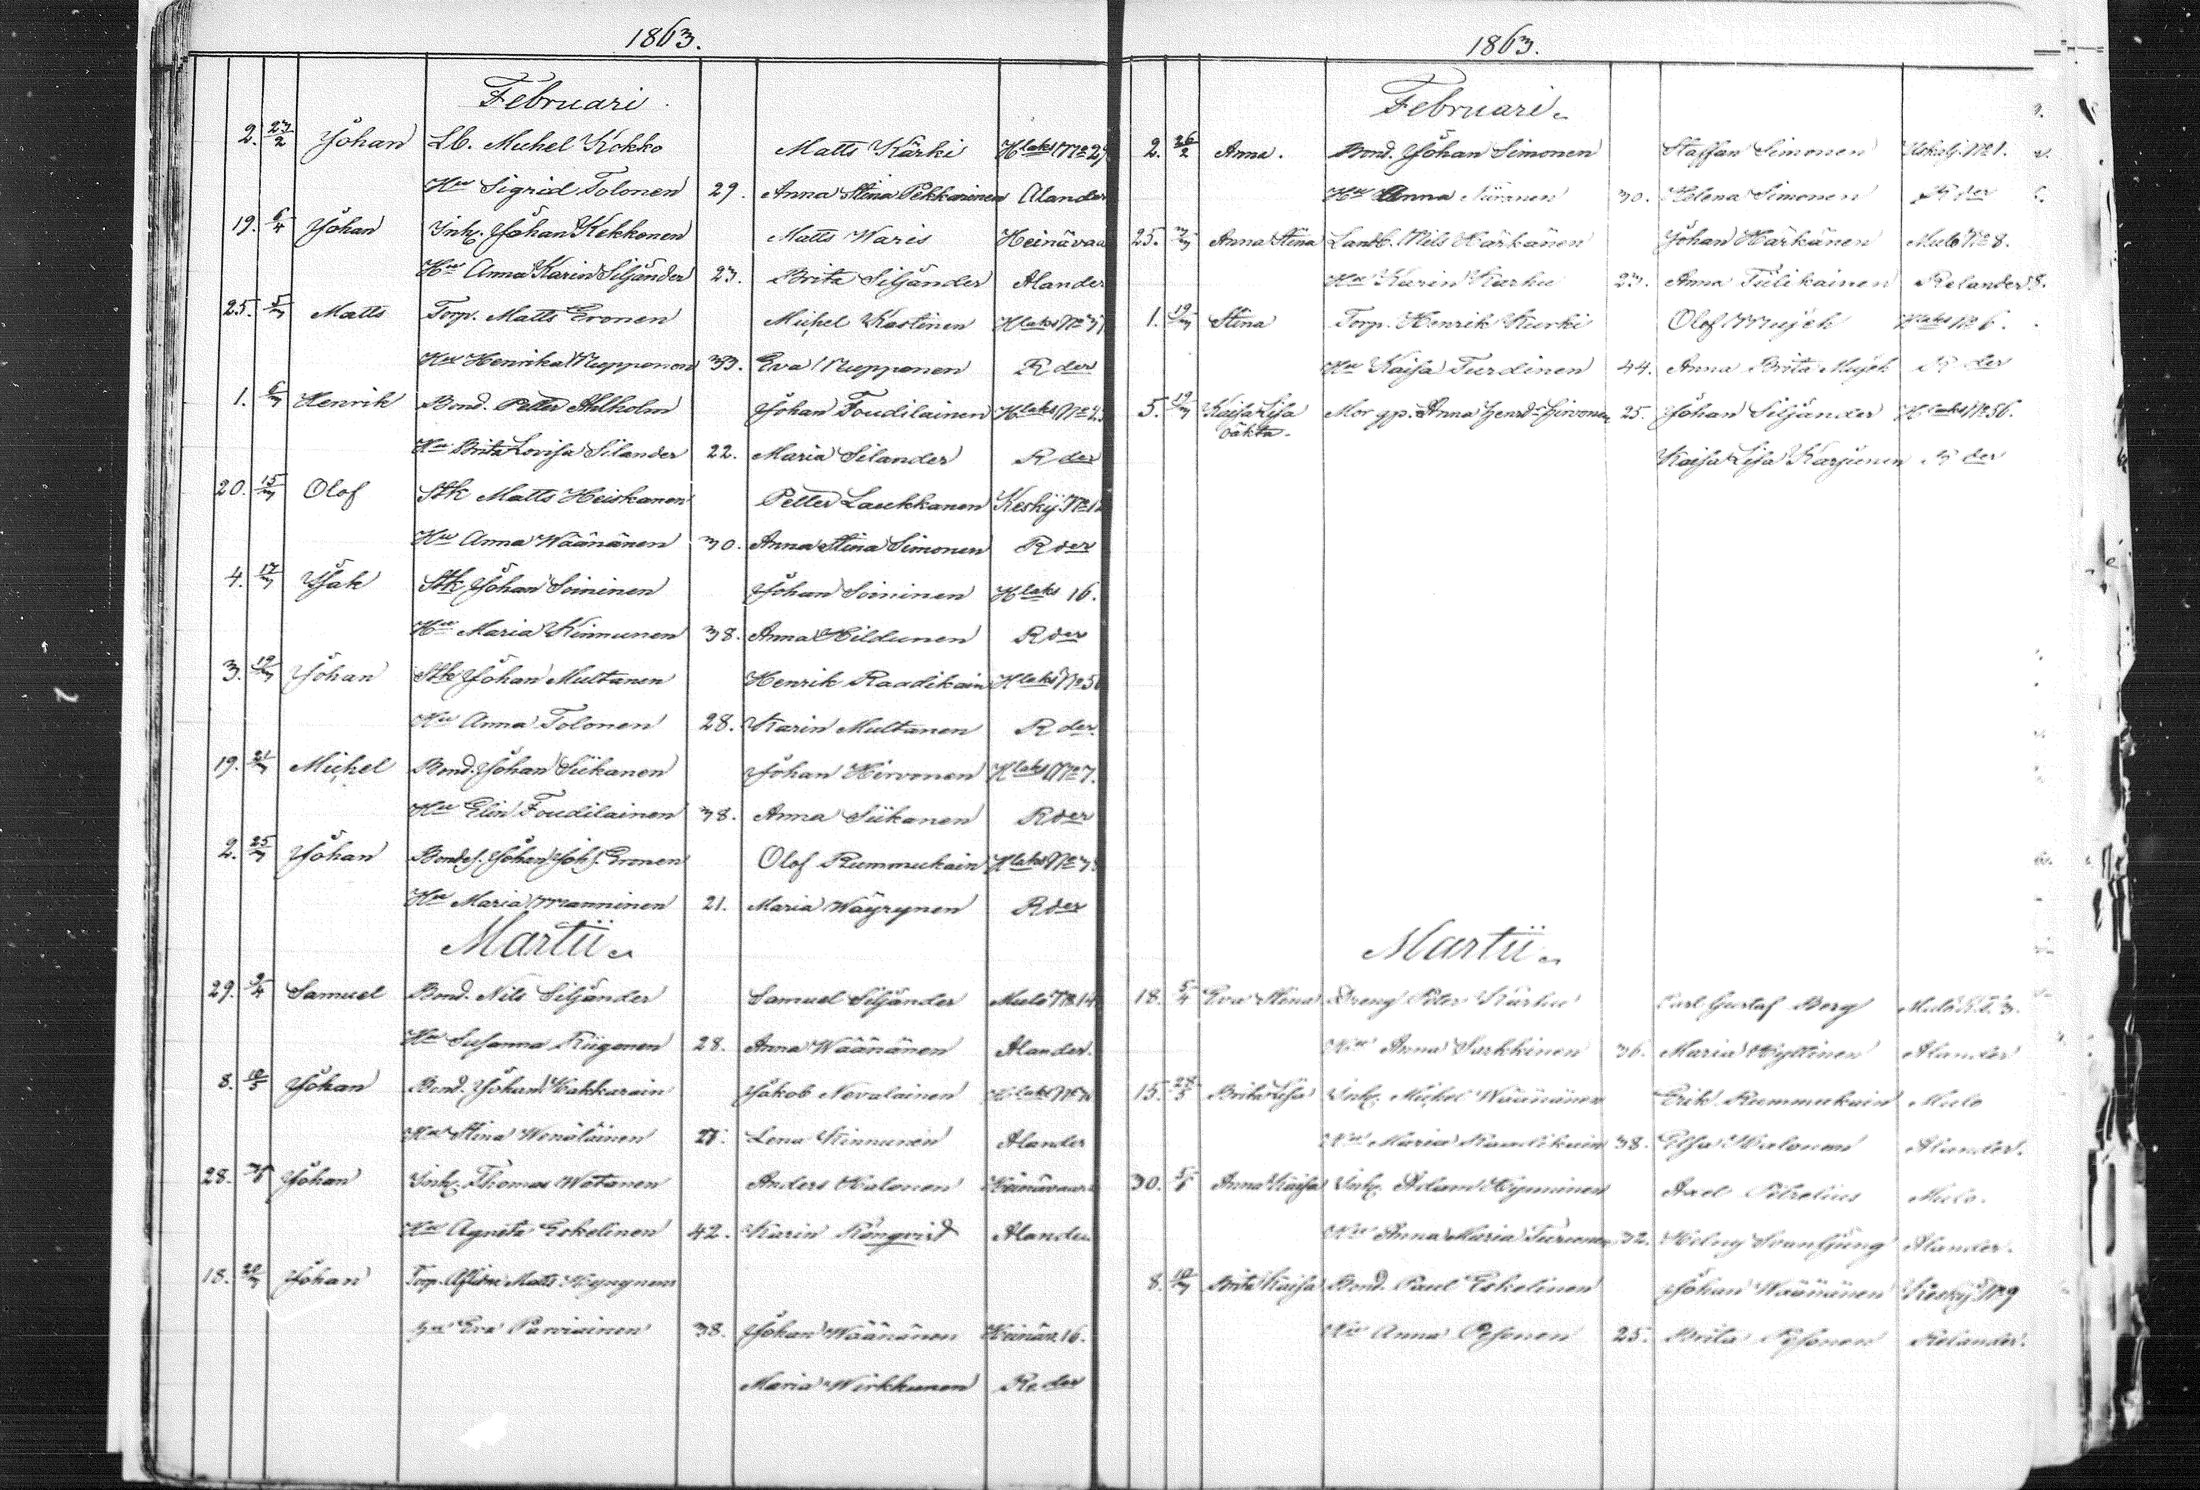 1863.
Februari
2. 23/2 Johan Lb. Michel Kokko Matts Kärki Hlaks No 2
Hu Sigrid Tolonen 29. Anna Stina Pekkarinen Alander
19. 6/4 Johan Inh. Johan Kekkonen Matts Waris Heinävaa
Hu Anna Karin Siljander 23. Brita Siljander Alander
25. Matts Torp. Matts Eronen Michel Kastinen Hlaks No
Hu Henrika Nupponen 33. Eva Nupponen R der
1. Henrik Bond. Petter Ahlholm Johan Toudilainen Hlaks No
Hu Brita Lovisa Silander 22. Maria Silander R der
20. 15/3 Olof Stk Matts Heiskanen Petter Laukkanen Keskij. No 12
Hu Anna Wäänänen 30. Anna Stina Simonen R der
4. 17/3 Isak Stk Johan Soininen Johan Soininen Hlaks 16.
Hu Maria Kinnunen 38. Anna Hildunen R der
3. 19/3 Johan Stk Johan Multanen Henrik Raadikain Hlaks No 5
Hu Anna Tolonen 28. Karin Multanen R der
19. 21/3 Michel Bond. Johan Siikanen Johan Hirvonen Hlaks No 7.
Hu Elin Toudilainen 38. Anna Siikanen R der
2. 25/3 Johan Bondes. Johan Joh s. Eronen Olof Rummukain Hlaks No 3
Hu Maria Manninen 21. Maria Wäyrynen R der
Martii
29. Samuel Bond. Nils Siljander Samuel Siljander Mulo No 14
Hu Susanna Kiigonen 28. Anna Wäänänen Alander.
8. 10/5 Johan Bond. Johan Kakkarain Jakob Nevalainen Hlaks No
Hu Stina Wenäläinen 27. Lena Kinnunen Alander
28. Johan Inh. Thomas Watanen Anders Halonen Heinävaara
Hu Agneta Eskelinen 42. Karin Rönqvist Alander
18. 20/7 Johan Torp. Matts Kyngnen
Hu Eva Parviainen 38. Johan Wäänänen Heinäv. 16.
Maria Wirkkunen Re der
1863.
Februari.
2. 26/2 Anna. Bond. Johan Simonen Staffan Simonen No 1.
Hu Anna 30. Helena Simonen R der
25. Anna Stina Landb. Nils Härkänen Johan Härkänen Mulo No 8.
Hu Karin Karhu 23. Anna Tulikainen Relander
1. 19/3 Stina Torp. Henrik Kurki Olof Mujeh Hlaks No 6.
Hu Kaisa Turdinen 44. Anna Brita Mujeh R der
5. 19/3 Kaisa Lisa Mor gp. Anna Henrd. Hirvonen 25. Johan Siljander Hlaks No 56.
oäkta. Kaisa Lisa Karjunen R der
Martii.
18. 5/4 Eva Stina Dreng Peter Karhu Carl Gustaf Berg Mulo No 3.
Hu Anna Surkkinen 36. Maria Hyttinen Alander
15. 28/5 Brita Lisa Inh. Michel Wäänänen Erik Rummukain Mulo
Hu Maria Raadikain 38. Elsa Halonen Alander.
30. Anna Kaisa Inh. Adam Hynninen Axel Petrelius Mulo.
Hu Anna Maria Turunen 32. Hilny Svanljung Alander.
8. 19/7 Brita Kaisa Bond. Paul Eskelinen Johan Wäänänen Keskij. No 9
Hu Anna Pesonen 25. Brita Pesonen Relander.